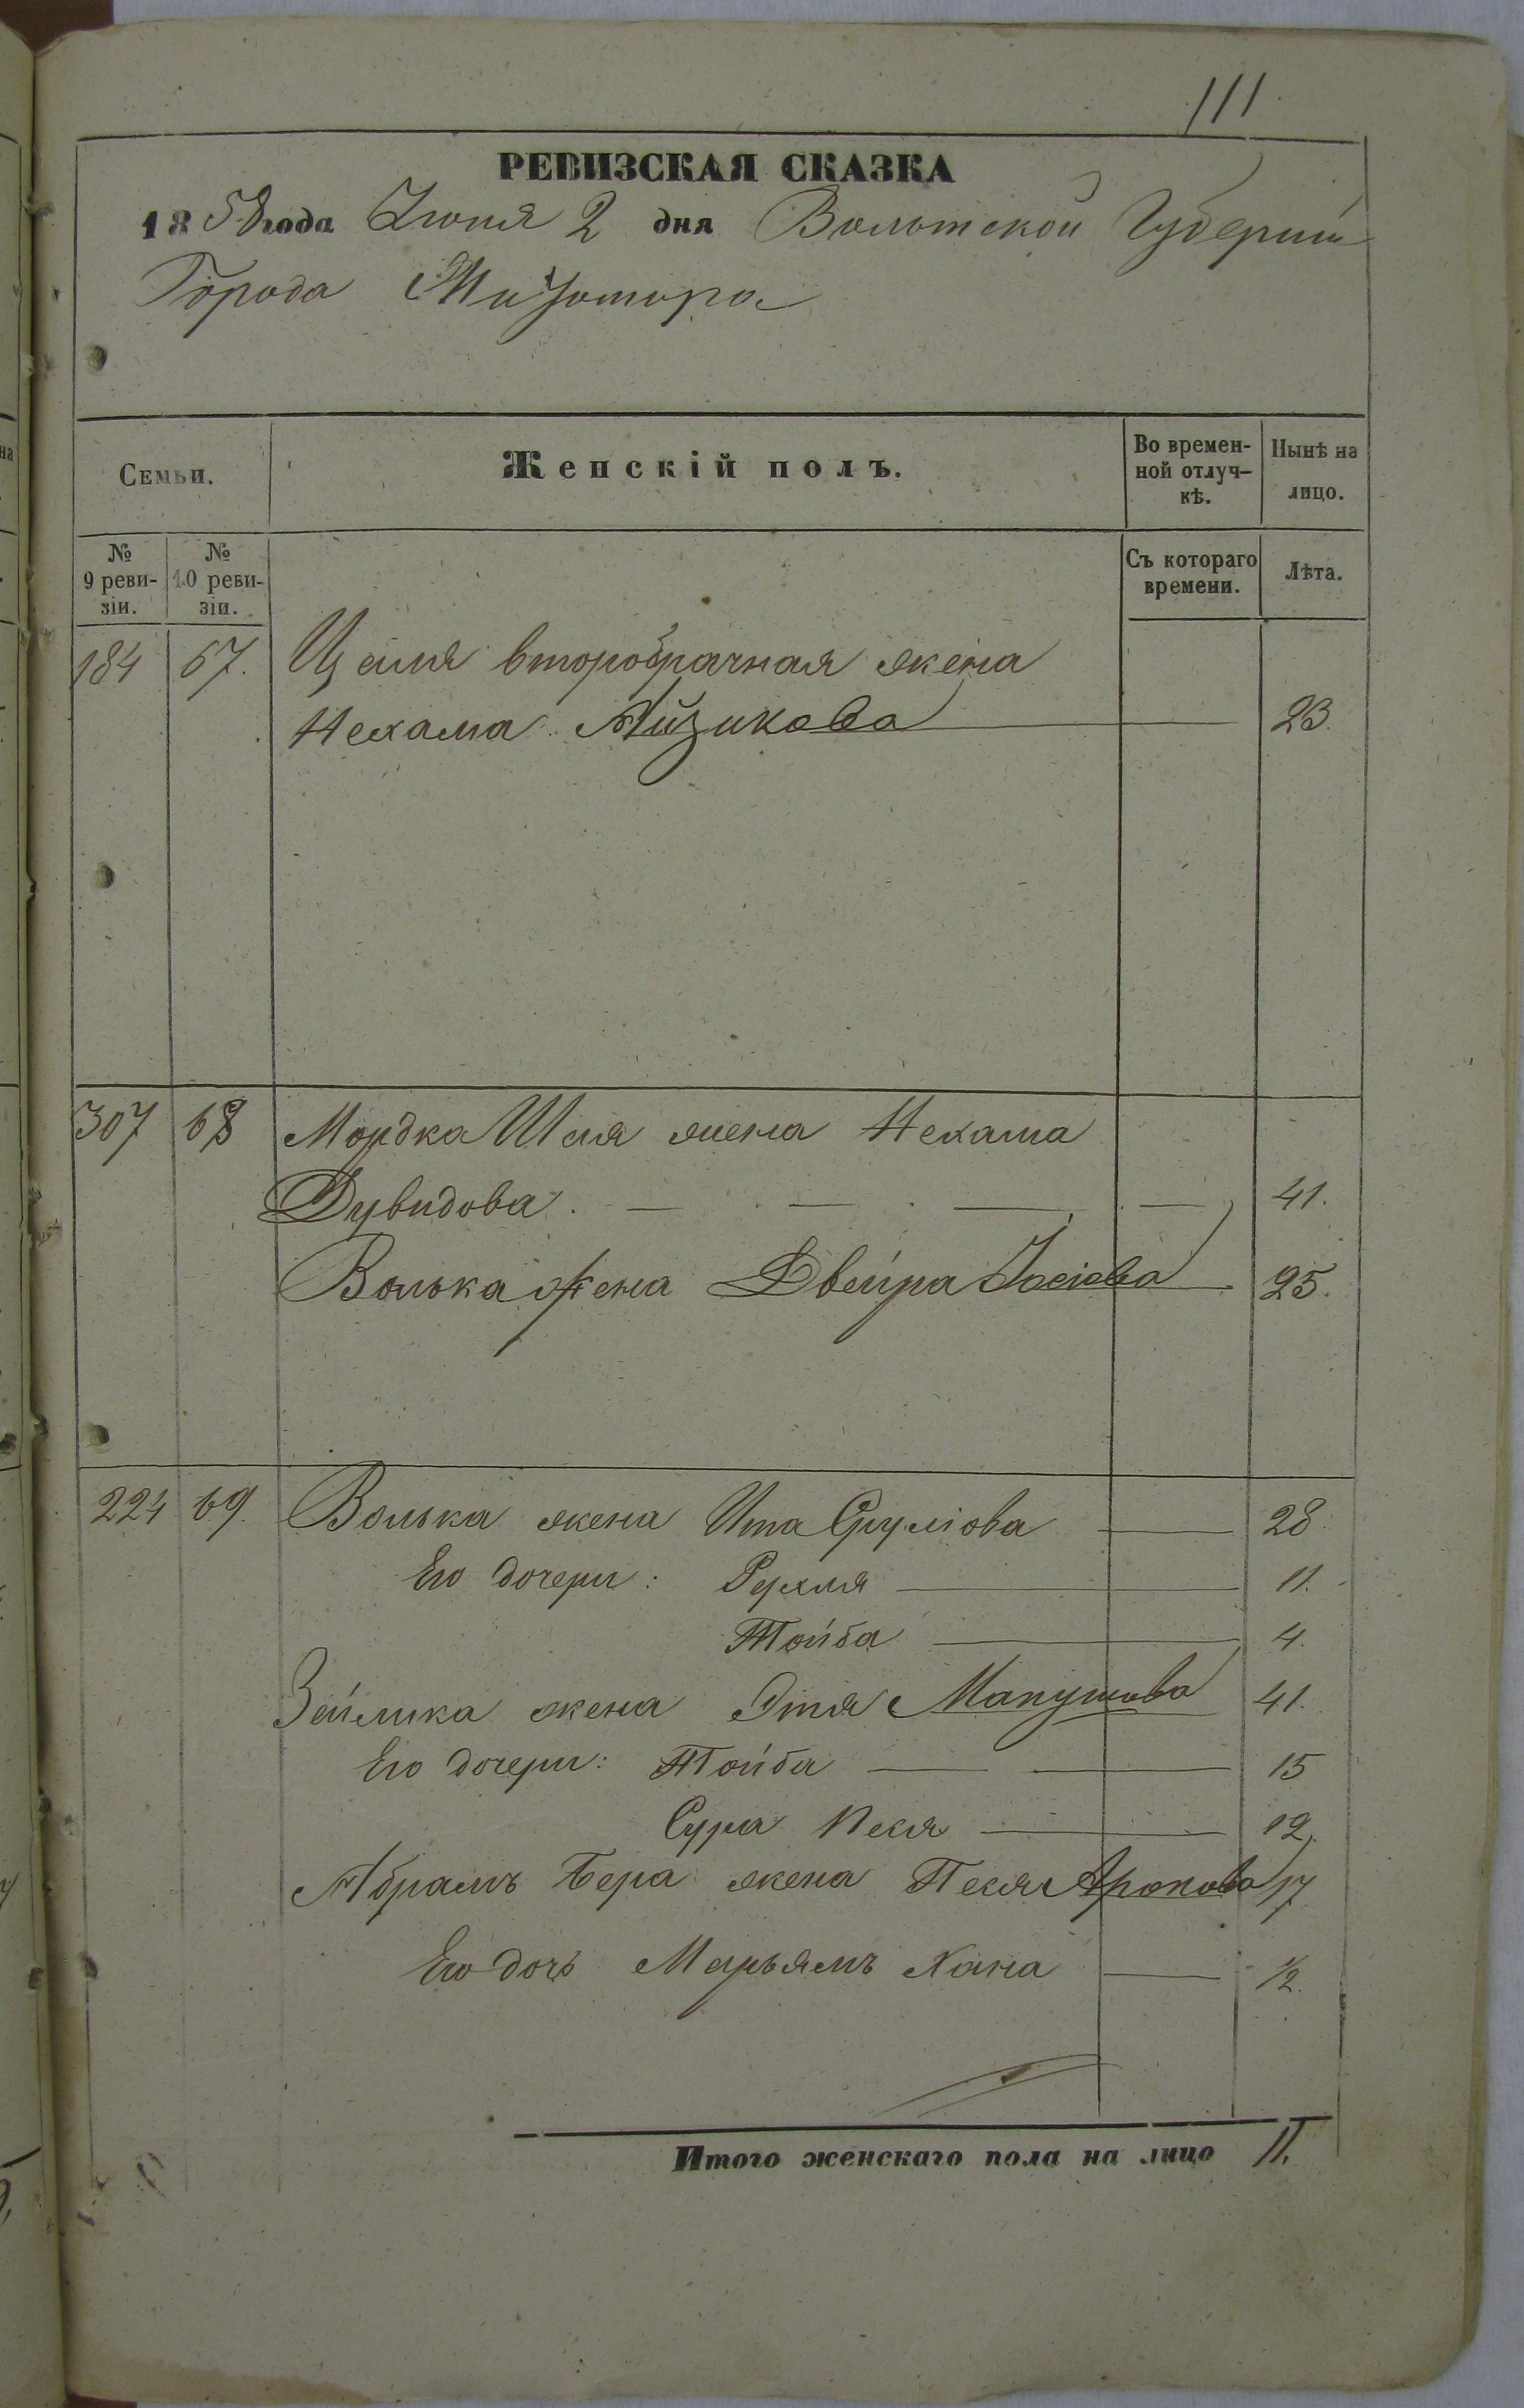 111.
РЕВИЗСКАЯ СКАЗКА
1858 года Іюня 2 дня Волынской Губерніи
Города Житомира
Семьи.
Женскій полъ.
Во времен-
ной отлуч-
кѣ.
Нынѣ на
лицо.
№
9 реви-
зіи.
№
10 реви-
зіи.
Съ котораго
времени.
Лѣта.
184 67. второбрачная жена
Нехама Айзикова — 23.
307 68 Мордка Шая жена Нехама
Дувидова. — — — — 41.
Волька жена Двейра Іосіова 25.
224 69. Волька жена Ита Сруліова — 28
Его дочери: Рухля — 11.
Тойба — 4.
Зейлика жена Этя Манушова 41.
Его дочери: Тойба — — 15
Сура Песя — 12.
Абрамъ Бера жена Песя Аронова 17
Его дочь Марьямъ Хана — 1/2.
Итого женскаго пола на лицо 11.